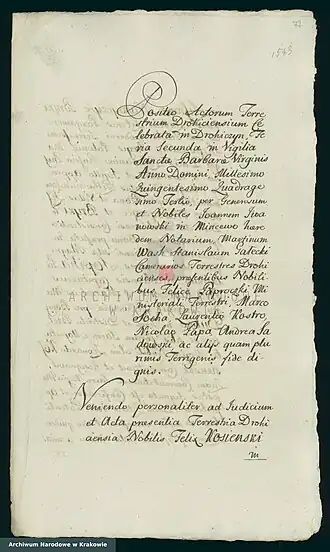 77
1543
Positio Actorum Terre
strium Drohiciensium Ce
lebrata in Drohiczyn, Fe
ria Secunda in Vigilia
Sanctæ Barbaræ Virginis
Anno Domini, Millesimo
Quingentesimo Quadrage
Simo Tertio, per Generosum
et Nobiles Joannem Iwa
nowski in Mincewo hæere
dem Notarium, Martinum
Wash Stanislaum Jalecki
Camerarios Terrestres Drohi
cienses, præsentibus Nobili
bus Felice Paprocki Mi
nisteriali Terrestri, Marco
Socha, Laurentio Kostro,
Nicolao Papa, Andrea Sa
dowski ac alijs quam plu
rimis Terrigenis fide di
gnis.
Veniendo personaliter ad Judicium
et Acta præsentia Terrestria Drohi
ciensia Nobilis Felix KOSIENSKI
m
ARCHIWUM
Archiwum Narodowe w Krakowie